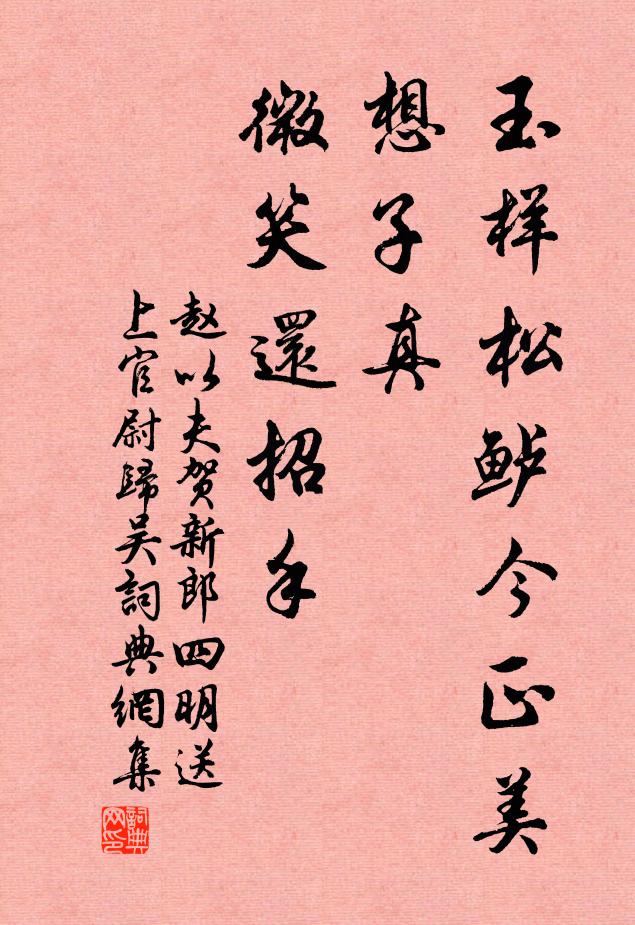 玉样松鲈今正美
想子真
微笑還招手
赵以夫贺新郎四明送
上官尉歸吴詞典網集
詞典
网印